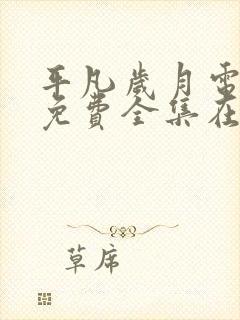 平凡岁月电
免费全集在
草席